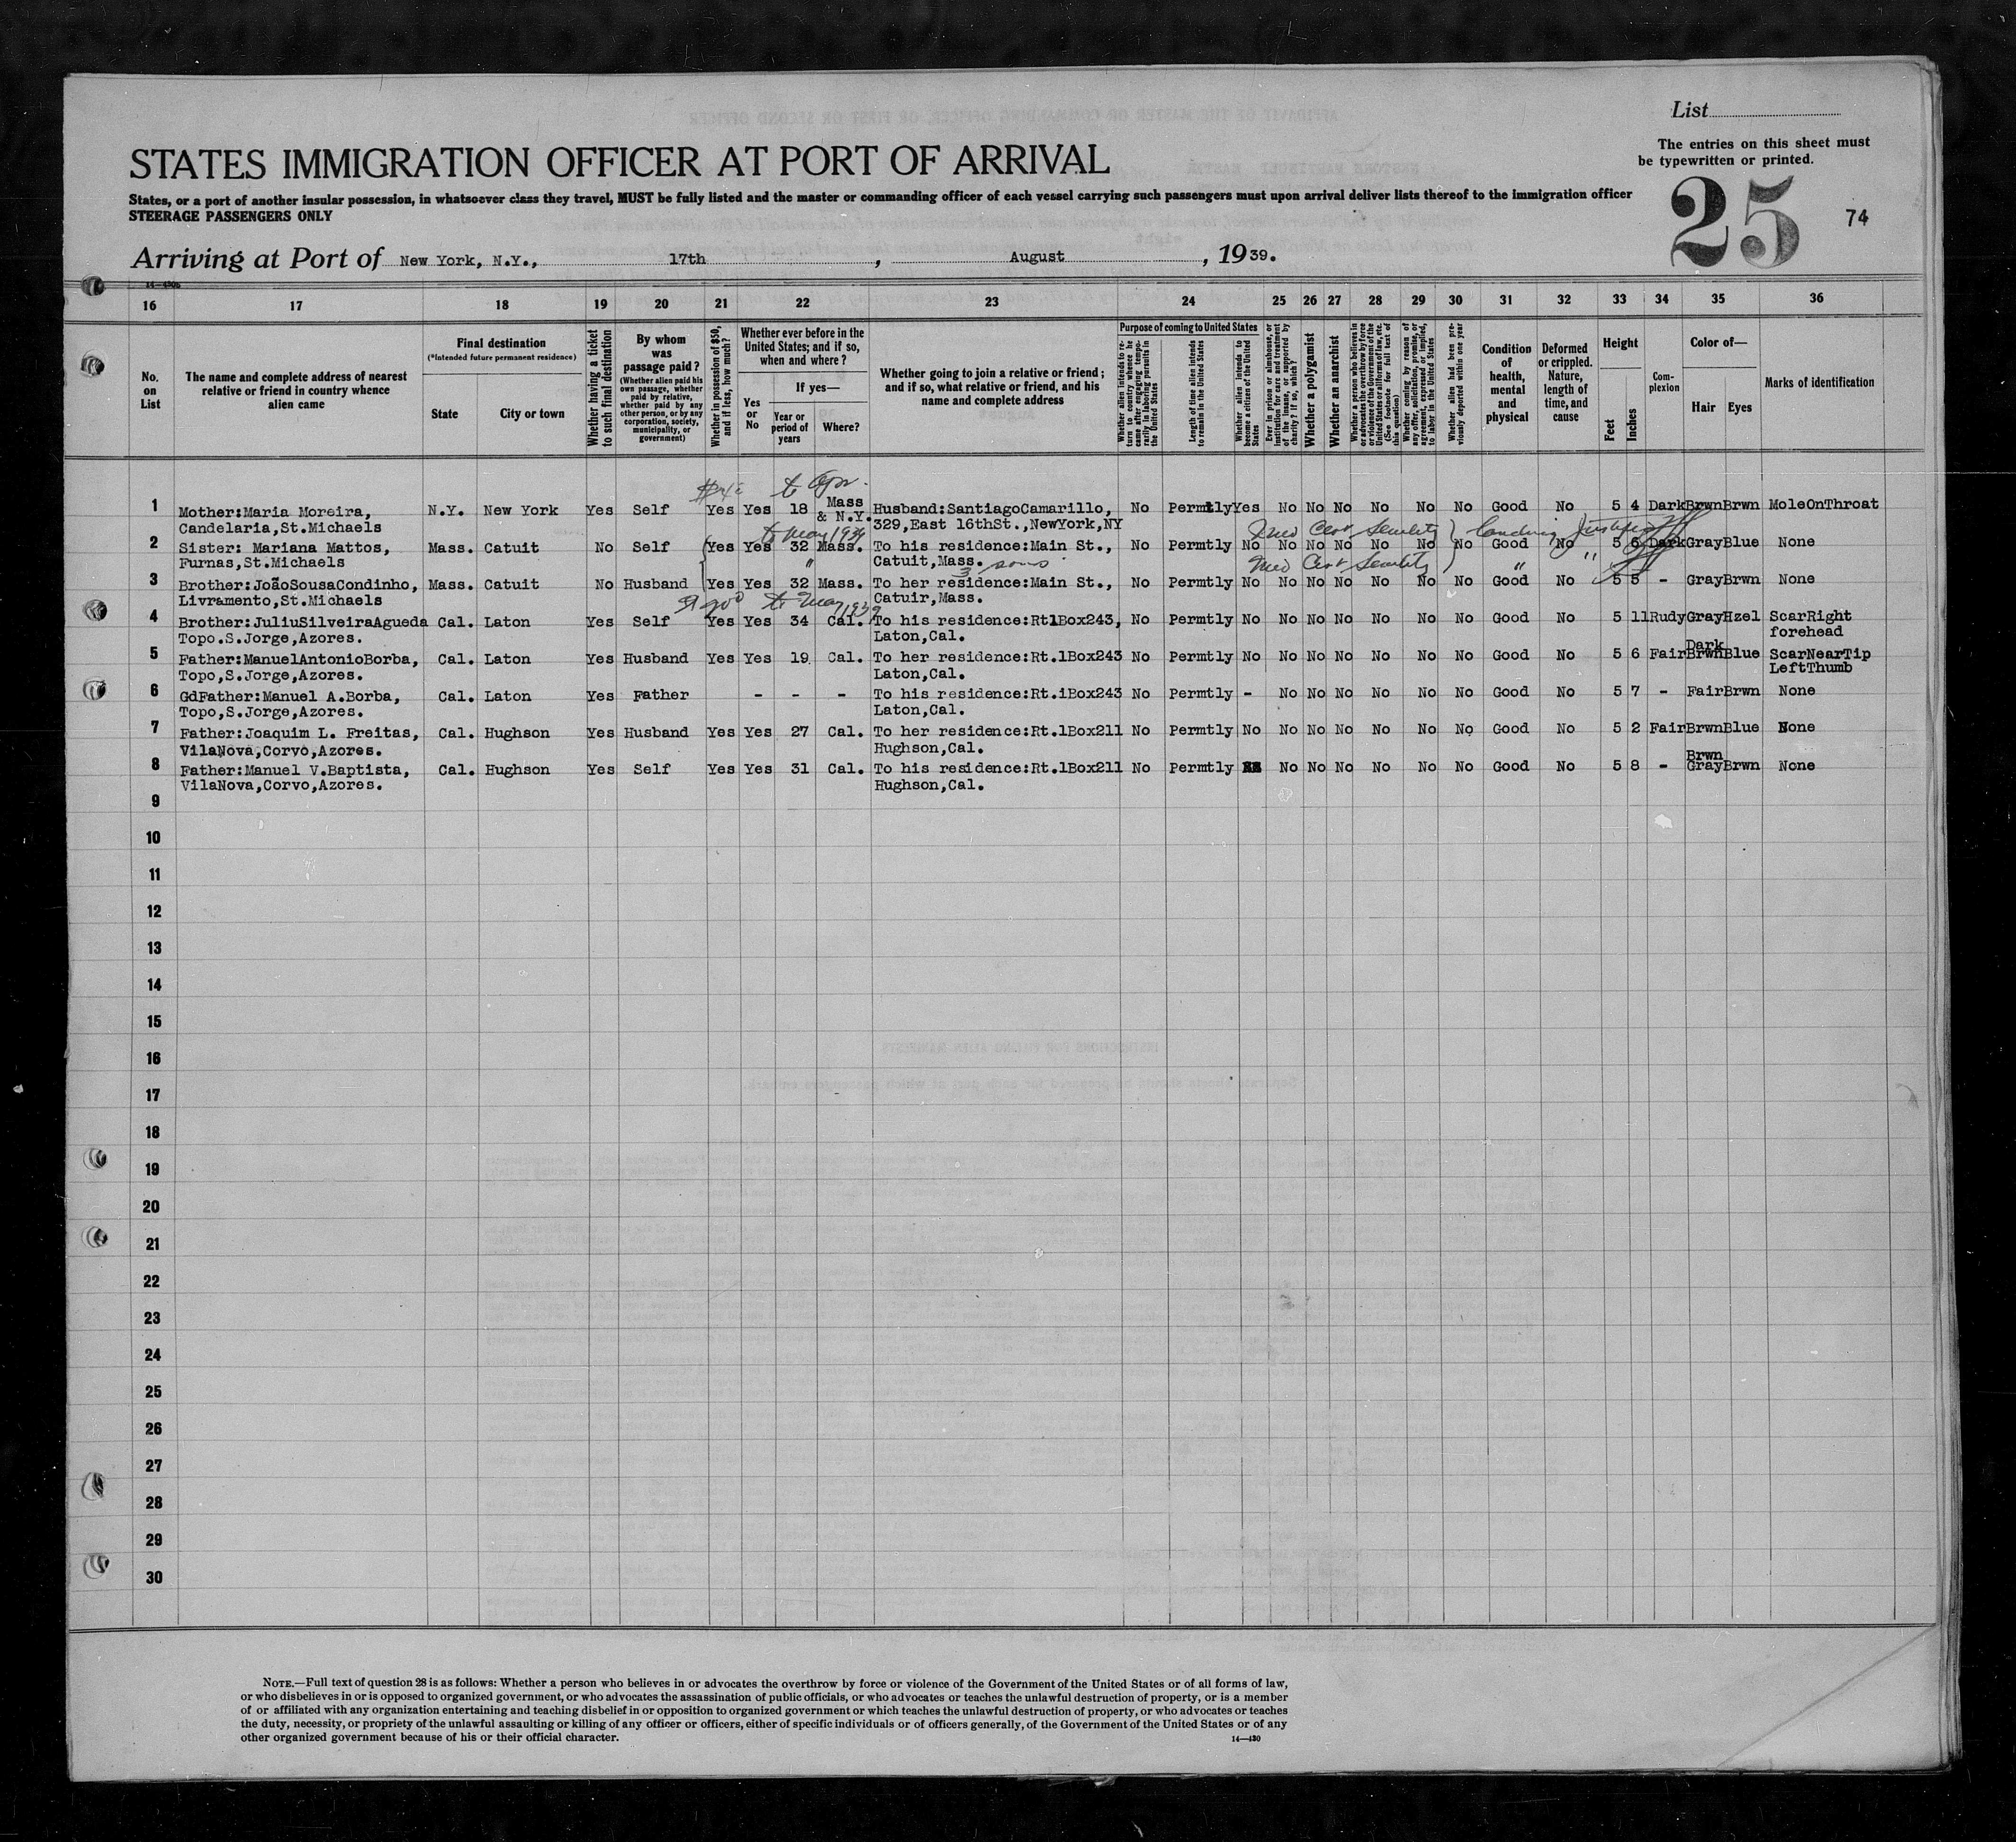 List
The entries on this sheet must
be typewritten or printed.
STATES IMMIGRATION OFFICER AT PORT OF ARRIVAL
States, or a port of another insular possession, in whatsoever class they travel, MUST be fully listed and the master or commanding officer of each vessel carrying such passengers must upon arrival deliver lists thereof to the immigration officer
STEERAGE PASSENGERS ONLY
25
74
Arriving at Port of New York, N.Y., 17th, August, 1939.
16 17 18 19 20 21 22 23 24 25 26 27 28 29 30 31 32 33 34 35 36
No. on List
The name and complete address of nearest relative or friend in country whence alien came
Final destination
(*Intended future permanent residence)
State
City or town
Whether having a ticket to such final destination
By whom was passage paid?
(Whether alien paid his own passage, whether paid by relative, whether paid by any other person, or by any corporation, society, municipality, or government)
Whether in possession of $50, and if less, how much?
Whether ever before in the United States; and if so, when and where?
If yes—
Yes or No
Year or period of years
Where?
Whether going to join a relative or friend; and if so, what relative or friend, and his name and complete address
Purpose of coming to United States
Whether alien intends to return to country whence he came after engaging temporarily in laboring pursuits in the United States
Length of time alien intends to remain in the United States
Whether alien intends to become a citizen of the United States
Ever in prison or almshouse, or institution for care and treatment of the insane, or supported by charity? If so, which?
Whether a polygamist
Whether an anarchist
Whether a person who believes in or advocates the overthrow by force or violence of the Government of the United States or all forms of law, etc. (See footnote for full text of this question)
Whether coming by reason of any offer, solicitation, promise, or agreement, expressed or implied, to labor in the United States
Whether alien had been previously deported within one year
Condition of health, mental and physical
Deformed or crippled. Nature, length of time, and cause
Height
Feet
Inches
Complexion
Color of—
Hair
Eyes
Marks of identification
to Apr.
1 Mother:Maria Moreira, N.Y. New York Yes Self Yes Yes 18 Mass & N.Y. Husband:SantiagoCamarillo, No Permtly Yes No No No No No No Good No 5 4 Dark Brwn Brwn MoleOnThroat
Candelaria,St.Michaels 329,East 16thSt.,NewYork,NY
to May 1939
2 Sister: Mariana Mattos, Mass. Catuit No Self Yes Yes 32 Mass. To his residence:Main St., No Permtly No No No No No No No Good No 5 6 Dark Gray Blue None
Furnas,St.Michaels Catuit,Mass.
Med Cert Senility Landing
3 sons
3 Brother:JoãoSousaCondinho, Mass. Catuit No Husband Yes Yes 32 Mass. To her residence:Main St., No Permtly No No No No No No No Good No 5 5 - Gray Brwn None
Livramento,St.Michaels Catuir,Mass.
Med Cert Senility " "
to May 1939
4 Brother:JuliuSilveiraAgueda Cal. Laton Yes Self Yes Yes 34 Cal. To his residence:Rt1Box243, No Permtly No No No No No No No Good No 5 11 Rudy Gray Hzel ScarRight
Topo.S.Jorge,Azores. Laton,Cal. forehead
5 Father:ManuelAntonioBorba, Cal. Laton Yes Husband Yes Yes 19 Cal. To her residence:Rt.1Box243 No Permtly No No No No No No No Good No 5 6 Fair Dark Brwn Blue ScarNearTip
Topo,S.Jorge,Azores. Laton,Cal. LeftThumb
6 GdFather:Manuel A.Borba, Cal. Laton Yes Father - - - To his residence:Rt.iBox243 No Permtly - No No No No No No Good No 5 7 - Fair Brwn None
Topo,S.Jorge,Azores. Laton,Cal.
7 Father:Joaquim L. Freitas, Cal. Hughson Yes Husband Yes Yes 27 Cal. To her residence:Rt.1Box211 No Permtly No No No No No No No Good No 5 2 Fair Brwn Blue None
VilaNova,Corvo,Azores. Hughson,Cal.
8 Father:Manuel V.Baptista, Cal. Hughson Yes Self Yes Yes 31 Cal. To his residence:Rt.1Box211 No Permtly No No No No No No Good No 5 8 - Brwn Gray Brwn None
VilaNova,Corvo,Azores. Hughson,Cal.
9
10
11
12
13
14
15
16
17
18
19
20
21
22
23
24
25
26
27
28
29
30
NOTE.—Full text of question 28 is as follows: Whether a person who believes in or advocates the overthrow by force or violence of the Government of the United States or of all forms of law,
or who disbelieves in or is opposed to organized government, or who advocates the assassination of public officials, or who advocates or teaches the unlawful destruction of property, or is a member
of or affiliated with any organization entertaining and teaching disbelief in or opposition to organized government or which teaches the unlawful destruction of property, or who advocates or teaches
the duty, necessity, or propriety of the unlawful assaulting or killing of any officer or officers, either of specific individuals or of officers generally, of the Government of the United States or of any
other organized government because of his or their official character.
14—430